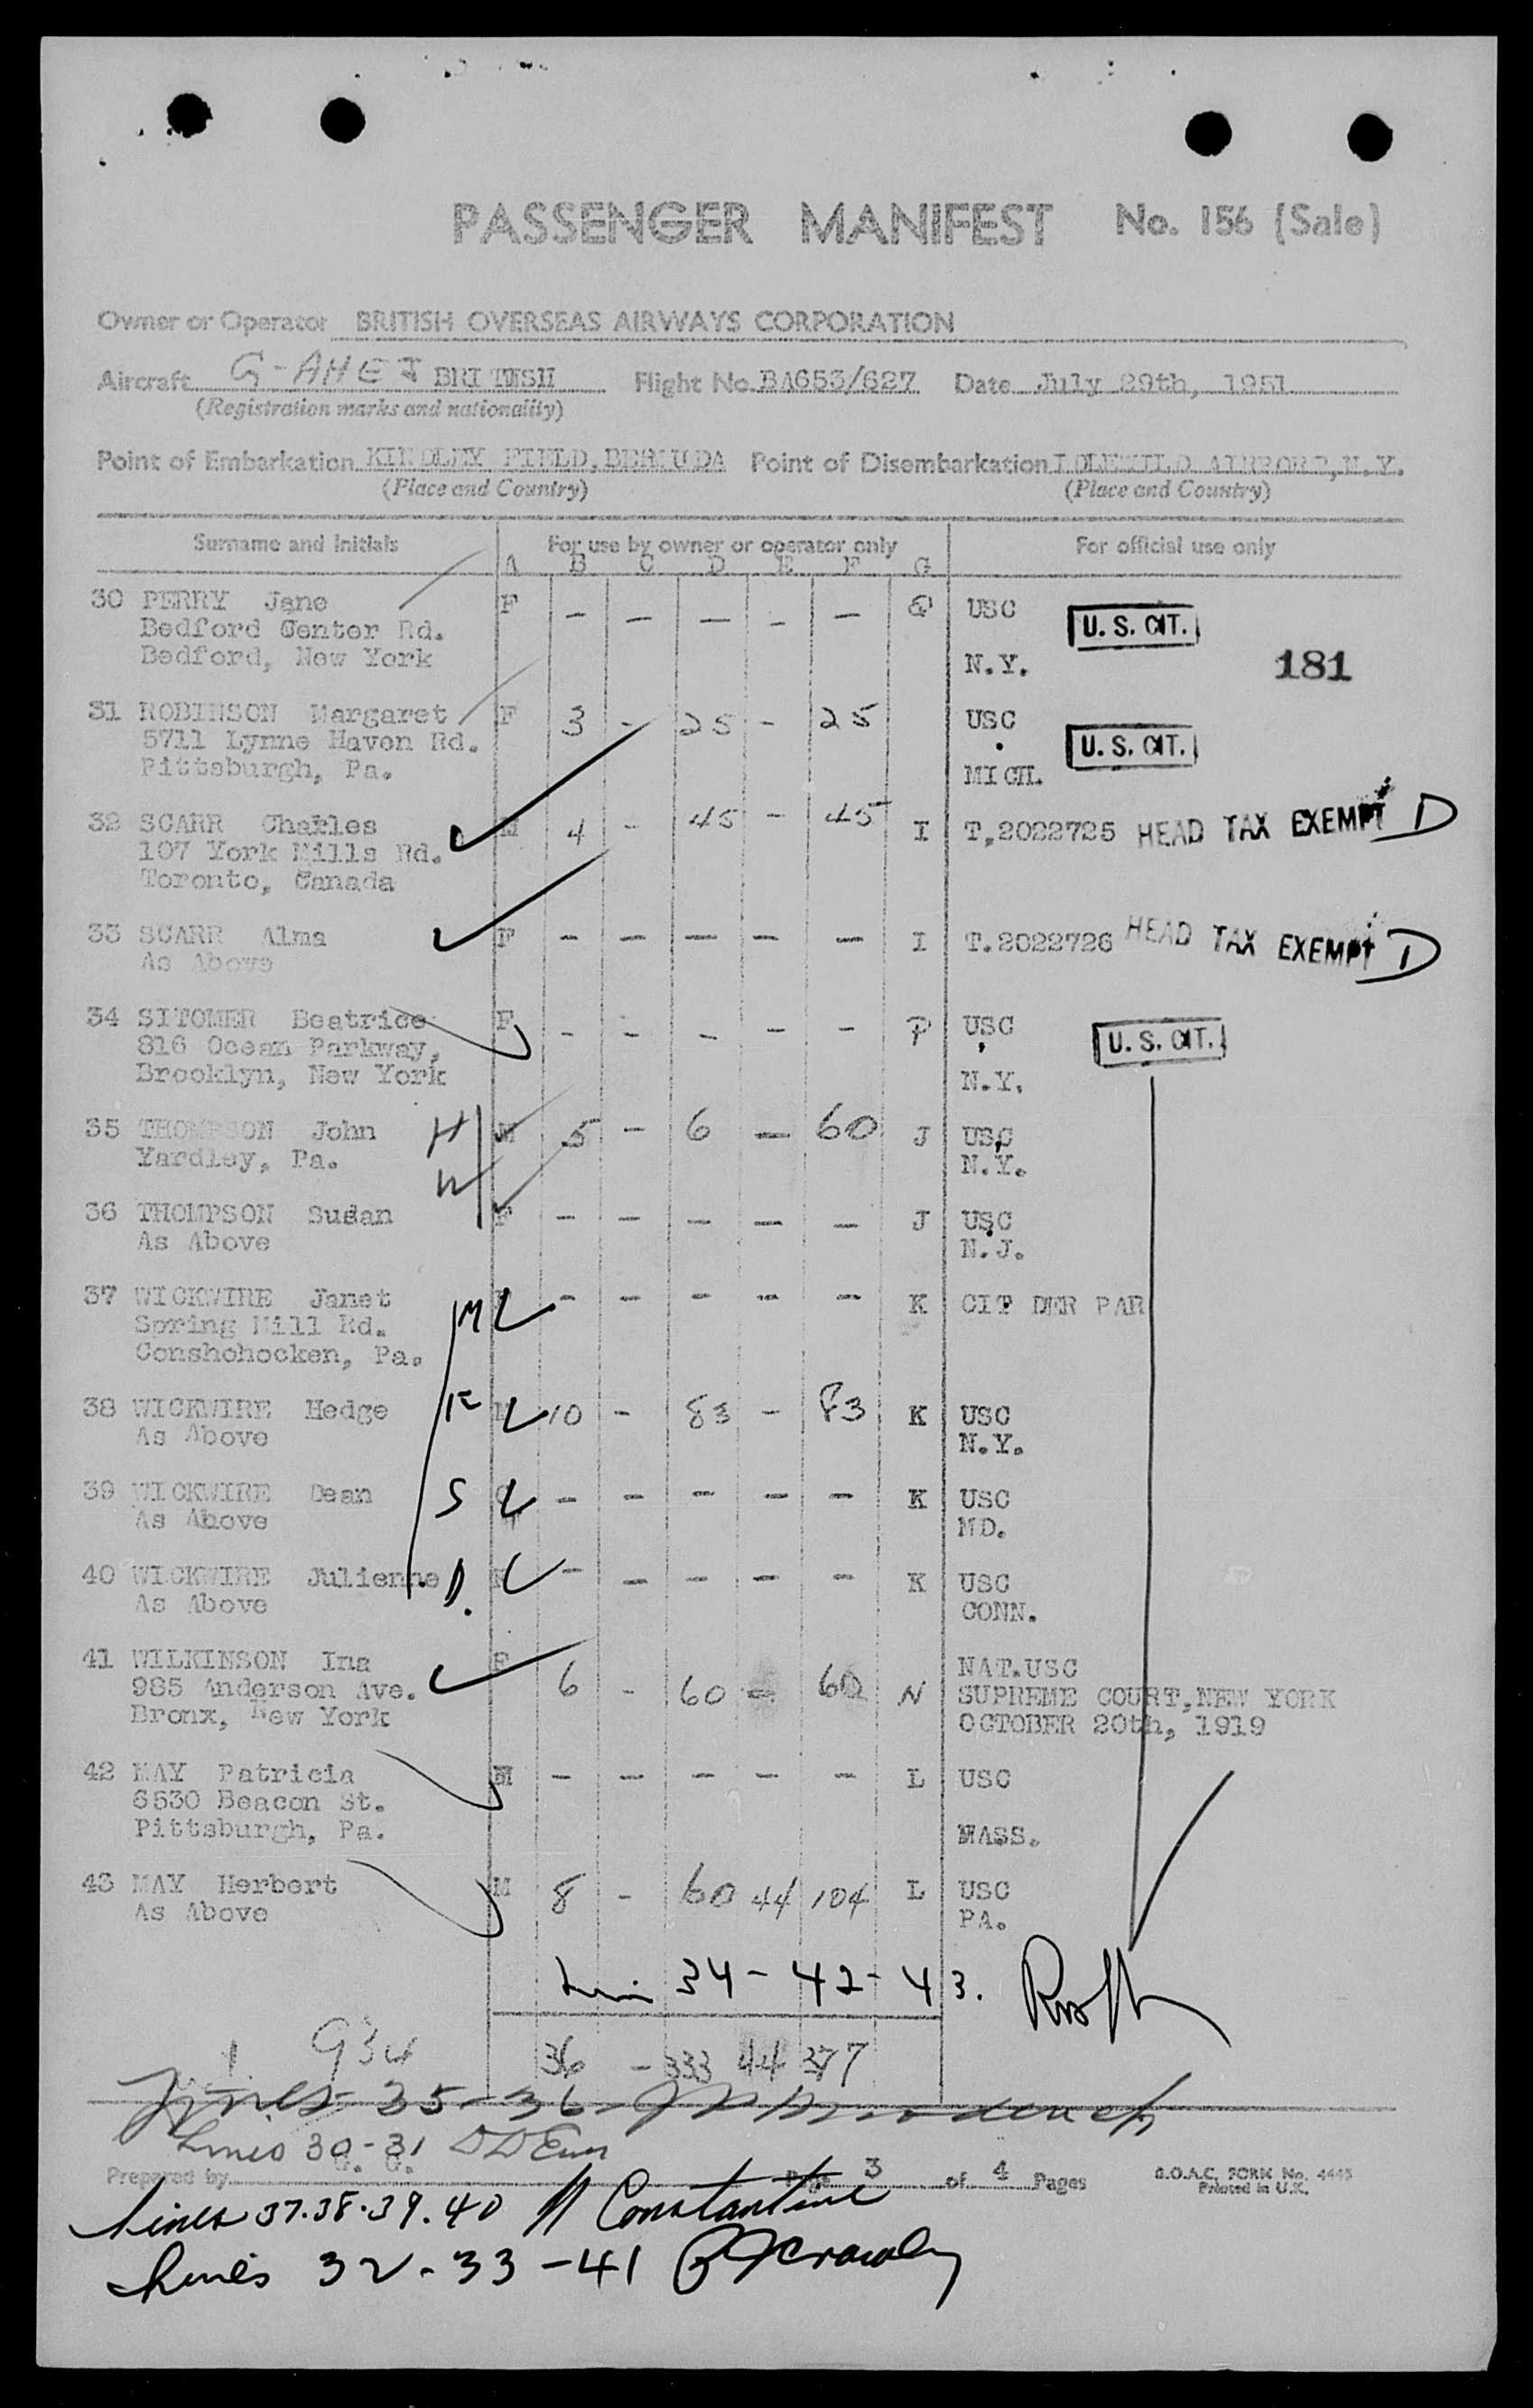 PASSENGER MANIFEST No. 156 (Sale)
Owner or Operator BRITISH OVERSEAS AIRWAYS CORPORATION
Aircraft G-AHEJ BRITISH Flight No. BA653/627 Date July 29th, 1951
(Registration marks and nationality)
Point of Embarkation KINDLEY FIELD, BERMUDA Point of Disembarkation IDLEWILD AIRPORT, N.Y.
(Place and Country) (Place and Country)
Surname and Initials For use by owner or operator only For official use only
A B C D E F G
30 PERRY Jane F - - - - - Q USC U. S. CIT.
Bedford Center Rd.
Bedford, New York N.Y. 181
31 ROBINSON Margaret F 3 - 25 - 25 USC
5711 Lynne Haven Rd. U. S. CIT.
Pittsburgh, Pa. MICH.
32 SCARR Charles M 4 - 45 - 45 I T.2022725 HEAD TAX EXEMPT D
107 York Mills Rd.
Toronto, Canada
33 SCARR Alma F - - - - - I T.2022726 HEAD TAX EXEMPT D
As Above
34 SITOMER Beatrice F - - - - - P USC U. S. CIT.
816 Ocean Parkway,
Brooklyn, New York N.Y.
35 THOMPSON John H M 5 - 6 - 60 J USC
Yardley, Pa. W N.Y.
36 THOMPSON Susan F - - - - - J USC
As Above N.J.
37 WICKWIRE Janet M - - - - - K CIT DER PAR
Spring Mill Rd.
Conshohocken, Pa.
38 WICKWIRE Hedge F M 10 - 83 - 83 K USC
As Above N.Y.
39 WICKWIRE Dean S - - - - - K USC
As Above MD.
40 WICKWIRE Julienne D. F - - - - - K USC
As Above CONN.
41 WILKINSON Ina F 6 - 60 - 60 N NAT.USC
985 Anderson Ave. SUPREME COURT, NEW YORK
Bronx, New York OCTOBER 20th, 1919
42 MAY Patricia M - - - - - L USC
6530 Beacon St.
Pittsburgh, Pa. MASS.
43 MAY Herbert M 8 - 60 44 104 L USC
As Above PA.
34 - 42 - 43.
36 - 333 44 377
Lines 35-36
Lines 30-31
Prepared by Page 3 of 4 Pages B.O.A.C. FORM No. 4445
Printed in U.K.
Lines 37.38.39.40 Constantine
Lines 32-33-41